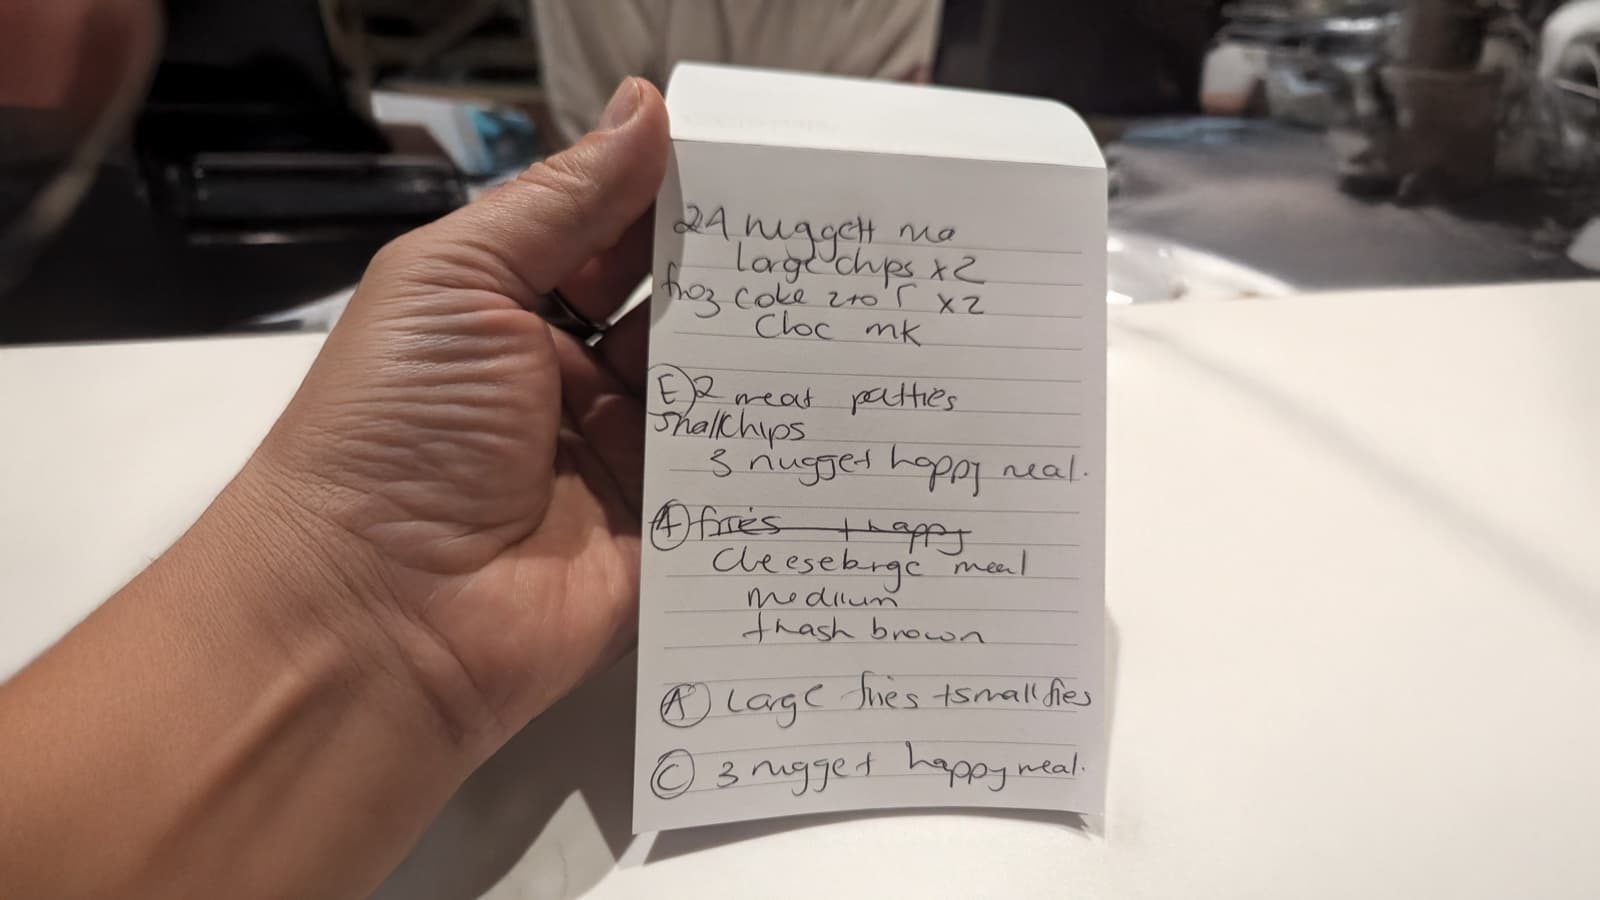 24 nuggett
Large chips x2
froz coke x2
Choc mk
(E) 2 meat patties
Small chips
3 nugget happy meal.
(A) fries + happy
Cheesebrge meal
medium
+hash brown
(A) Large fries +small fies
(C) 3 nugget happy meal.